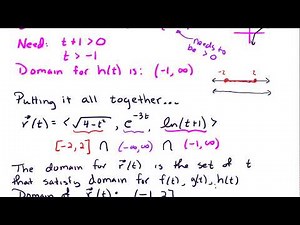 Need: t+1 > 0
needs to be > 0
t > -1
Domain for h(t) is: (-1, ∞)
-1
Putting it all together...
r⃗(t) = < √4-t², e^-3t, ln(t+1) >
[-2,2] ∩ (-∞,∞) ∩ (-1,∞)
The domain for r⃗(t) is the set of t
that satisfy domain for f(t), g(t), h(t)
Domain of r⃗(t): (-1, 2]